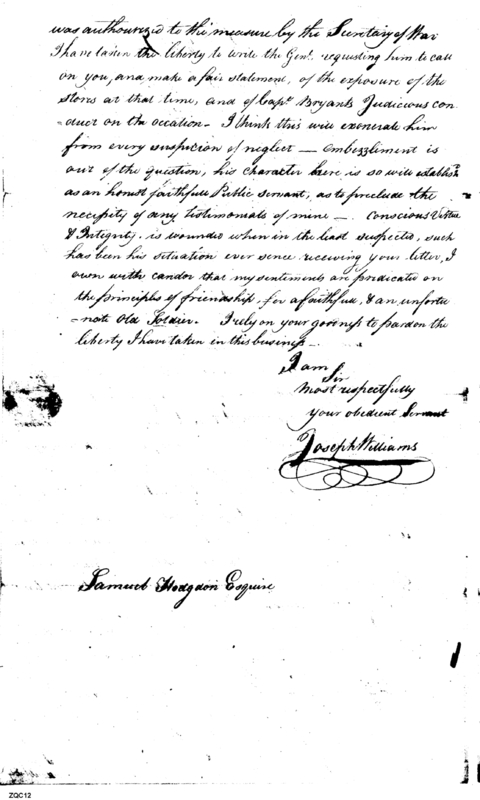 was authourized to this measure by the Secretary of War
I have taken the liberty to write the Genl. requesting him to call
on you, and make a fair statement, of the exposure of the
Stores at that time, and of Capt. Bryants Judicious con-
duct on the occation - I think this will exonerate him
from every suspicion of neglect — embezzlement is
out of the question, his character here is so well establish'd
as an honest faithfull Public Servant, as to preclude the
necessity of any testimonials of mine — Conscious Virtue
& Integrity, is wounded when in the least suspected, such
has been his situation ever sence receiving your letter, I
own with candor that my sentiments are predicated on
the principles of friendship, for a faithful, & an unfortu-
nate Old Soldier. I rely on your goodness to pardon the
liberty I have taken in this business -
I am
Sir
Most respectfully
your obedient Servant
Joseph Williams
Samuel Hodgdon Esquire
ZQC12